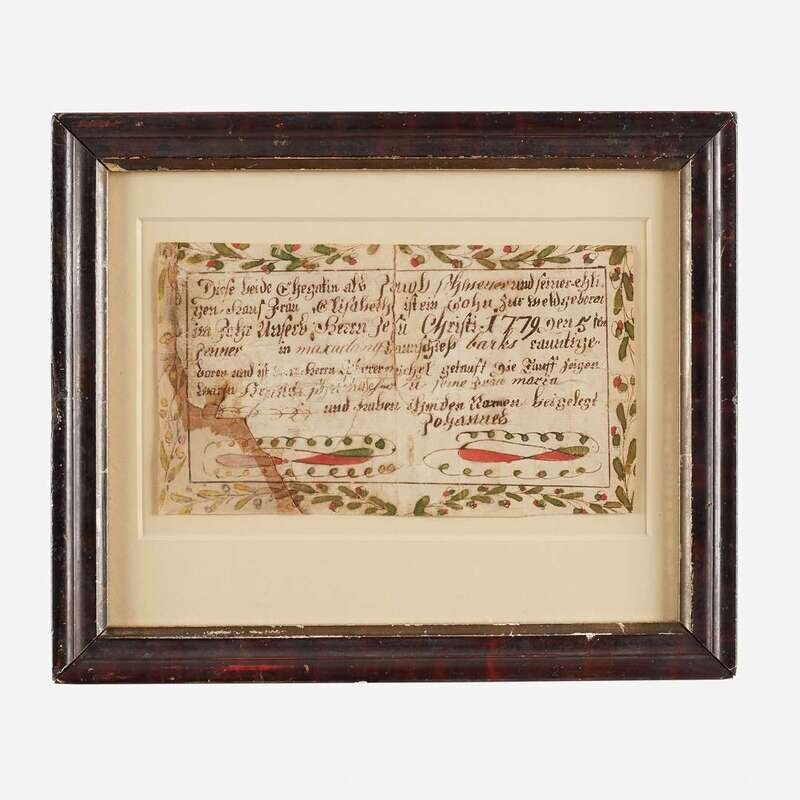 Diese beide Ehegatin als Jacob Scheuer und seiner ehli-
gen Haus Frau Elisabeth ist ein Sohn zur Welt geboren
im Jahr Unsers Herrn Jesu Christi 1779 den 5 ten
Jenner in maxadany Taunschieb barks caunti ge-
boren und ist von Herrn getauft die Tauff Zeigen
waren u seine frau maria
und haben ihm den Namen beigelegt
Johannes